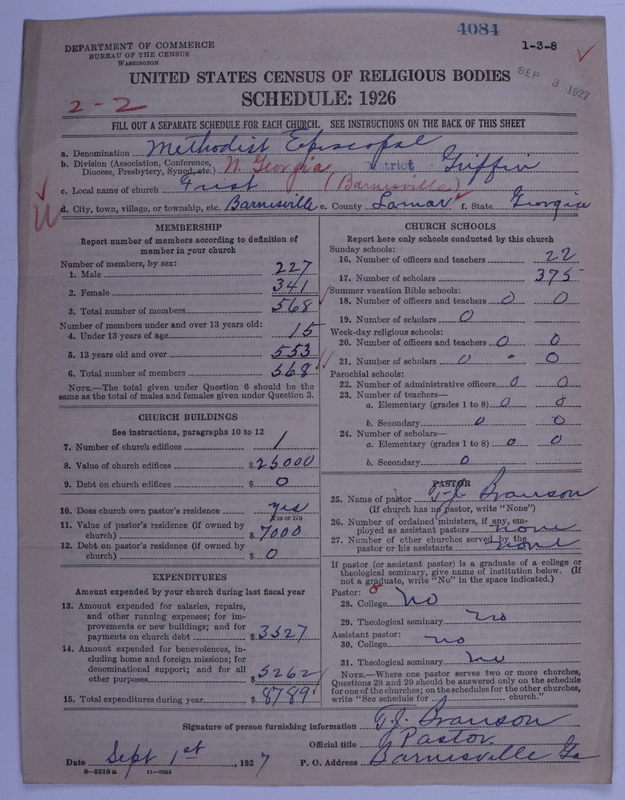 4084
DEPARTMENT OF COMMERCE
BUREAU OF THE CENSUS
WASHINGTON
1-3-8
SEP 3 1927
UNITED STATES CENSUS OF RELIGIOUS BODIES
SCHEDULE: 1926
2-2
FILL OUT A SEPARATE SCHEDULE FOR EACH CHURCH. SEE INSTRUCTIONS ON THE BACK OF THIS SHEET
a. Denomination Methodist Episcopal
b. Division (Association, Conference, Diocese, Presbytery, Synod, etc.) N. Georgia District Griffin
c. Local name of church First (Barnesville)
d. City, town, village, or township, etc. Barnesville e. County Lamar f. State Georgia
MEMBERSHIP
Report number of members according to definition of
member in your church
Number of members, by sex:
1. Male 227
2. Female 341
3. Total number of members 568
Number of members under and over 13 years old:
4. Under 13 years of age 15
5. 13 years old and over 553
6. Total number of members 568
NOTE.—The total given under Question 6 should be the
same as the total of males and females given under Question 3.
CHURCH BUILDINGS
See instructions, paragraphs 10 to 12
7. Number of church edifices 1
8. Value of church edifices $ 25000
9. Debt on church edifices $ 0
10. Does church own pastor's residence yes
Yes or No
11. Value of pastor's residence (if owned by
church) $ 7000
12. Debt on pastor's residence (if owned by
church) $ 0
EXPENDITURES
Amount expended by your church during last fiscal year
13. Amount expended for salaries, repairs,
and other running expenses; for im-
provements or new buildings; and for
payments on church debt $ 3527
14. Amount expended for benevolences, in-
cluding home and foreign missions; for
denominational support; and for all
other purposes $ 5262
15. Total expenditures during year $ 8789
CHURCH SCHOOLS
Report here only schools conducted by this church
Sunday schools:
16. Number of officers and teachers 22
17. Number of scholars 375
Summer vacation Bible schools:
18. Number of officers and teachers 0 0
19. Number of scholars 0
Week-day religious schools:
20. Number of officers and teachers 0 0
21. Number of scholars 0 0
Parochial schools:
22. Number of administrative officers 0 0
23. Number of teachers—
a. Elementary (grades 1 to 8) 0 0
b. Secondary 0 0
24. Number of scholars—
a. Elementary (grades 1 to 8) 0 0
b. Secondary 0
PASTOR
25. Name of pastor T. J. Branson
(If church has no pastor, write "None")
26. Number of ordained ministers, if any, em-
ployed as assistant pastors none
27. Number of other churches served by the
pastor or his assistants none
If pastor (or assistant pastor) is a graduate of a college or
theological seminary, give name of institution below. (If
not a graduate, write "No" in the space indicated.)
Pastor: 0
28. College No
29. Theological seminary no
Assistant pastor:
30. College no
31. Theological seminary no
NOTE.—Where one pastor serves two or more churches,
Questions 28 and 29 should be answered only on the schedule
for one of the churches; on the schedules for the other churches,
write "See schedule for church."
Signature of person furnishing information T. J. Branson
Official title Pastor
Date Sept 1st, 1927 P. O. Address Barnesville Ga
8-5518a 11-9064